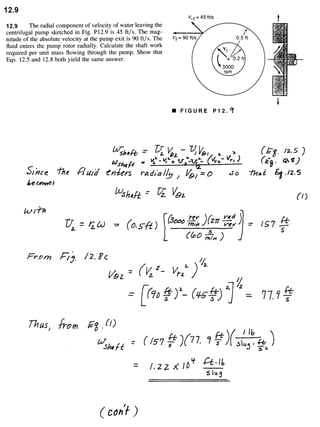 12.9
12.9 The radial component of velocity of water leaving the
centrifugal pump sketched in Fig. P12.9 is 45 ft/s. The mag-
nitude of the absolute velocity at the pump exit is 90 ft/s. The
fluid enters the pump rotor radially. Calculate the shaft work
required per unit mass flowing through the pump. Show that
Eqs. 12.5 and 12.8 both yield the same answer.
Vr2 = 45 ft/s
V2 = 90 ft/s
0.5 ft
V1
0.2 ft
3000
rpm
■ FIGURE P12.9
Wshaft = U2 Vθ2 - U1 Vθ1 (Eq. 12.5)
Since the fluid enters radially, Vθ1 = 0 so that Eq. 12.5
becomes
Wshaft = U2 Vθ2 (1)
with
U2 = r2 ω = (0.5ft) [(3000 rev/min)(2π rad/rev) / (60 s/min)] = 157 ft/s
From Fig. 12.8c
Vθ2 = (V2² - Vr2²)^½
= [(90 ft/s)² - (45 ft/s)²]^½ = 77.9 ft/s
Thus, from Eq. (1)
Wshaft = (157 ft/s)(77.9 ft/s)(1 lb / slug · ft/s²)
= 1.22 x 10⁴ ft·lb/slug
(con't)